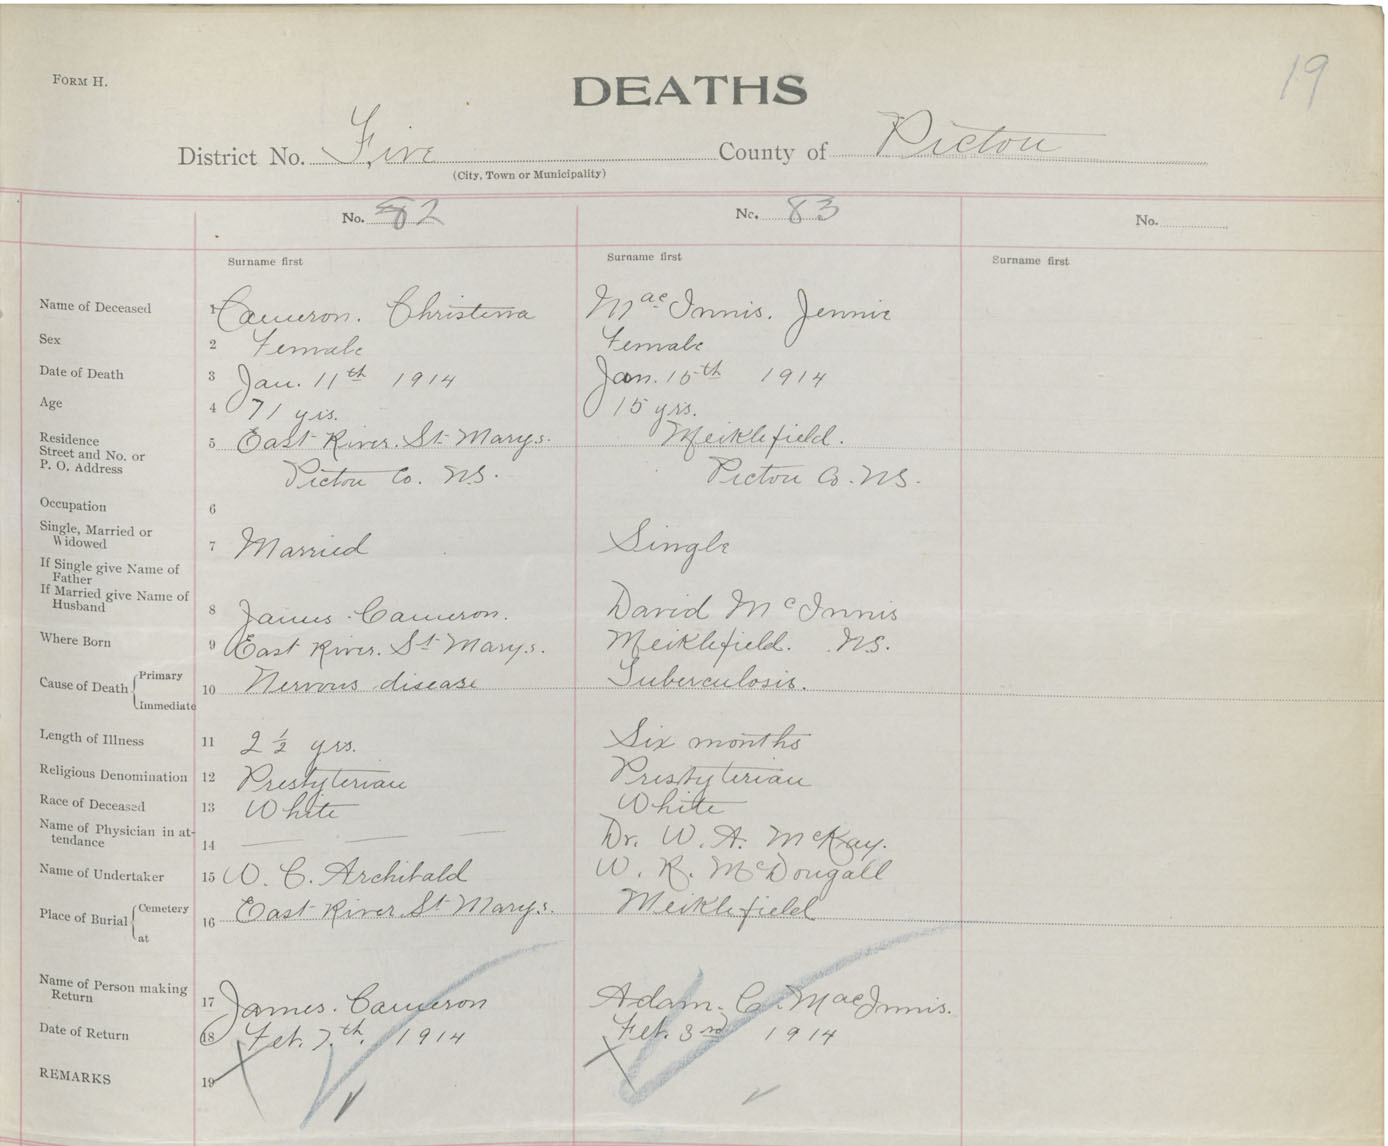 FORM H.
19
DEATHS
District No. Five County of Pictou
(City, Town or Municipality)
No. 82 No. 83 No.
Surname first Surname first Surname first
Name of Deceased 1 Cameron. Christina Mac Innis. Jennie
Sex 2 Female Female
Date of Death 3 Jan. 11th 1914 Jan. 15th 1914
Age 4 71 yrs. 15 yrs.
Residence Street and No. or P. O. Address 5 East River. St Marys. Meiklefield.
Pictou Co. N.S. Pictou Co. N.S.
Occupation 6
Single, Married or Widowed 7 Married Single
If Single give Name of Father
If Married give Name of Husband 8 James Cameron. David McInnis
Where Born 9 East River. St Marys. Meiklefield. N.S.
Cause of Death Primary Immediate 10 Nervous disease Tuberculosis.
Length of Illness 11 2 ½ yrs. Six months
Religious Denomination 12 Presbyterian Presbyterian
Race of Deceased 13 White White
Name of Physician in attendance 14 — — — Dr. W. A. McKay.
Name of Undertaker 15 W. C. Archibald W. R. McDougall
Place of Burial Cemetery at 16 East River St Marys. Meiklefield
Name of Person making Return 17 James. Cameron Adam. C. MacInnis.
Date of Return 18 Feb. 7.th. 1914 Feb. 3rd 1914
REMARKS 19